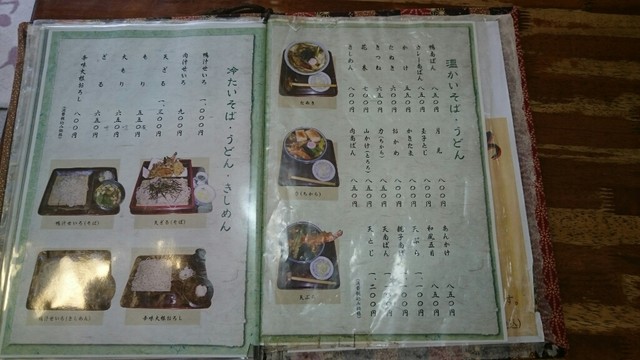 温かいそば・うどん
鴨南ばん 八五〇円
カレー南ばん 八五〇円
かけ 五五〇円
たぬき 六〇〇円
きつね 六五〇円
花巻 七〇〇円
きしめん 八〇〇円
月見
玉子とじ
かきたま 八〇〇円
おかめ 八〇〇円
力(ちから) 八五〇円
山かけ(とろろ) 八五〇円
肉南ばん 八五〇円
あんかけ 八五〇円
和風五目 八五〇円
天ぷら
親子南ばん
天南ばん
天とじ 一、二〇〇円
たぬき
力(ちから)
天ぷら
冷たいそば・うどん・きしめん
鴨汁せいろ 一、〇〇〇円
肉汁せいろ 九〇〇円
天ざる 一、三〇〇円
もり 五五〇円
大もり 六五〇円
ざる 六五〇円
辛味大根おろし 八〇〇円
鴨汁せいろ(そば)
天ざる(そば)
鴨汁せいろ(きしめん)
辛味大根おろし